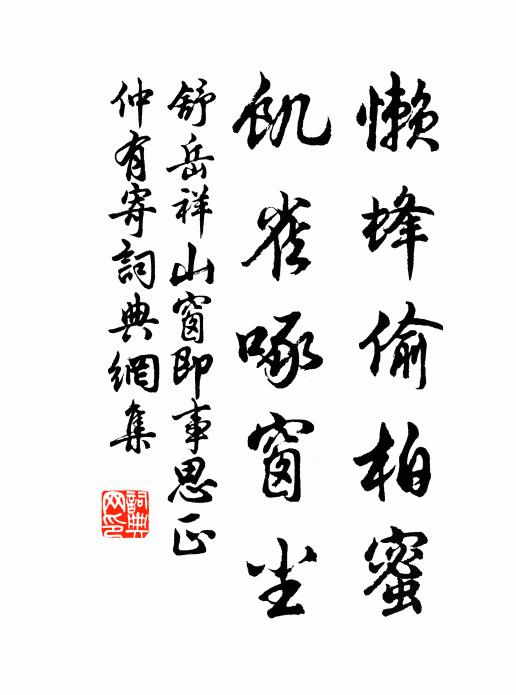 懒蜂偷柏蜜
飢雀啄窗尘
舒岳祥山窗即事思正
仲有寄詞典網集
詞典网印